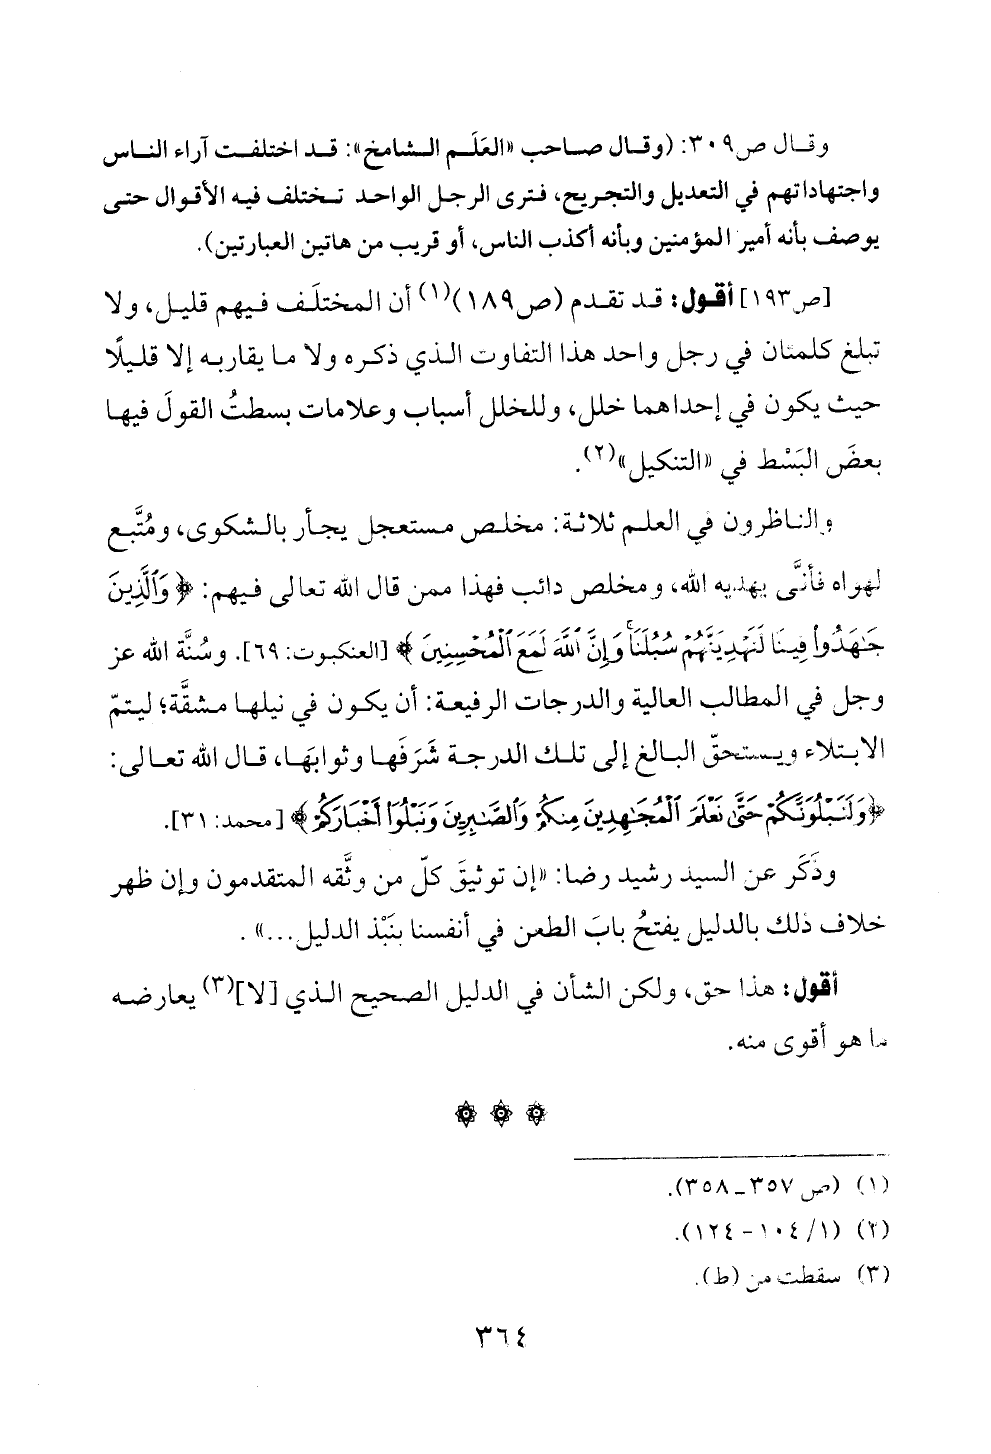 وقال ص٣٠٩: (وقال صاحب «العَلَم الشامخ»: قد اختلفت آراء الناس
واجتهاداتهم في التعديل والتجريح، فترى الرجل الواحد تختلف فيه الأقوال حتى
يوصف بأنه أمير المؤمنين وبأنه أكذب الناس، أو قريب من هاتين العبارتين).
[ص١٩٣] أقول: قد تقدم (ص١٨٩)(١) أن المختلَف فيهم قليل، ولا
تبلغ كلمتان في رجل واحد هذا التفاوت الذي ذكره ولا ما يقاربه إلا قليلًا
حيث يكون في إحداهما خلل، وللخلل أسباب وعلامات بسطتُ القولَ فيها
بعضَ البَسْط في «التنكيل»(٢).
والناظرون في العلم ثلاثة: مخلص مستعجل يجأر بالشكوى، ومُتَّبع
لهواه فأنَّى يهديه الله، ومخلص دائب فهذا ممن قال الله تعالى فيهم: ﴿وَٱلَّذِينَ
جَٰهَدُواْ فِينَا لَنَهْدِيَنَّهُمْ سُبُلَنَاۚ وَإِنَّ ٱللَّهَ لَمَعَ ٱلْمُحْسِنِينَ﴾ [العنكبوت: ٦٩]. وسُنَّة الله عز
وجل في المطالب العالية والدرجات الرفيعة: أن يكون في نيلها مشقَّة؛ ليتمّ
الابتلاء ويستحقّ البالغ إلى تلك الدرجة شَرَفَها وثوابَها، قال الله تعالى:
﴿وَلَنَبْلُوَنَّكُمْ حَتَّىٰ نَعْلَمَ ٱلْمُجَٰهِدِينَ مِنكُمْ وَٱلصَّٰبِرِينَ وَنَبْلُوَاْ أَخْبَارَكُمْ﴾ [محمد: ٣١].
وذَكَر عن السيد رشيد رضا: «إن توثيقَ كلّ من وثَّقه المتقدمون وإن ظهر
خلاف ذلك بالدليل يفتحُ بابَ الطعن في أنفسنا بنَبْذ الدليل...».
أقول: هذا حق، ولكن الشأن في الدليل الصحيح الذي [لا](٣) يعارضه
ما هو أقوى منه.
(١) (ص ٣٥٧ـ ٣٥٨).
(٢) (١/ ١٠٤ - ١٢٤).
(٣) سقطت من (ط).
٣٦٤